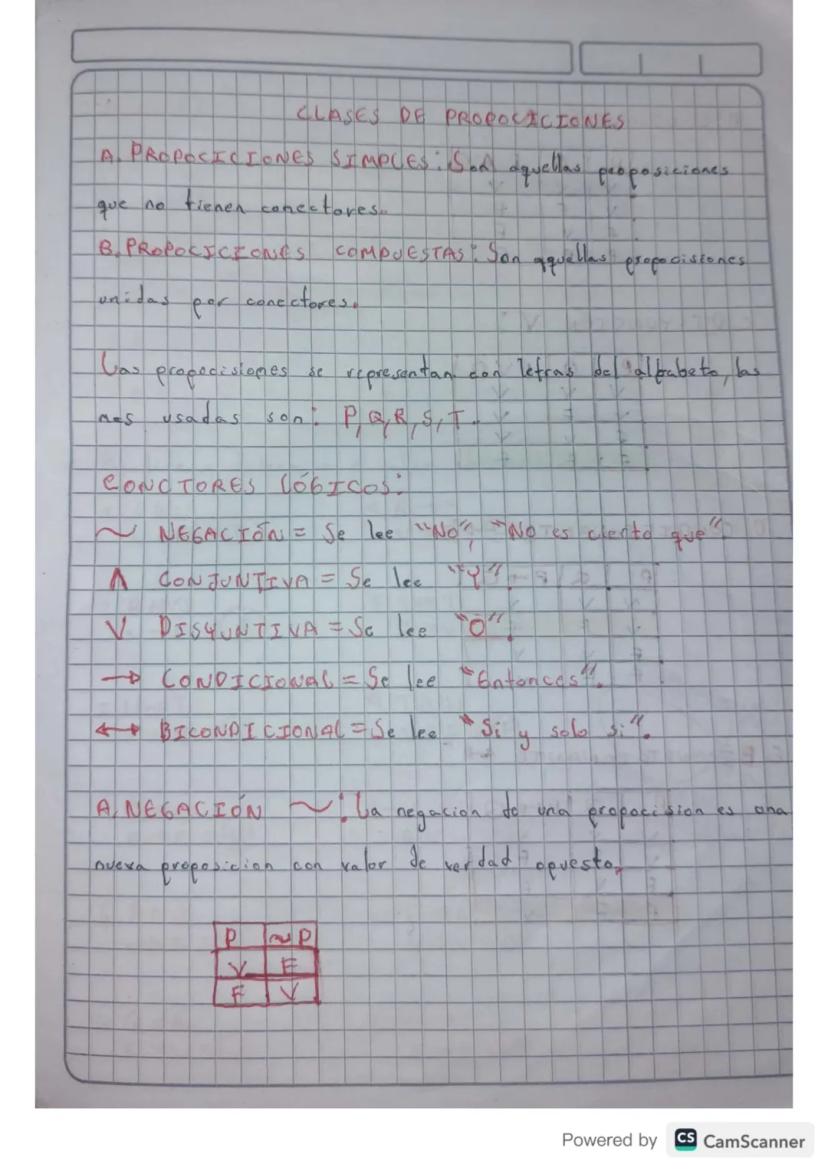 CLASES DE PROPOCICIONES
A. PROPOCICIONES SIMPLES: Son aquellas proposiciones
que no tienen conectores.
B. PROPOCICIONES COMPUESTAS: Son aquellas propocisiones
unidas por conectores.
Las propocisiones se representan con letras del alfabeto, las
mas usadas son: P, Q, R, S, T.
CONCTORES LÓGICOS:
~ NEGACIÓN = Se lee "No", "No es cierto que"
∧ CONJUNTIVA = Se lee "Y".
∨ DISYUNTIVA = Se lee "O".
→ CONDICIONAL = Se lee "Entonces".
↔ BICONDICIONAL = Se lee "Si y solo si".
A. NEGACIÓN ~: La negacion de una propocision es una
nueva proposicion con valor de verdad opuesto.
P ~P
V F
F V
Powered by CS CamScanner